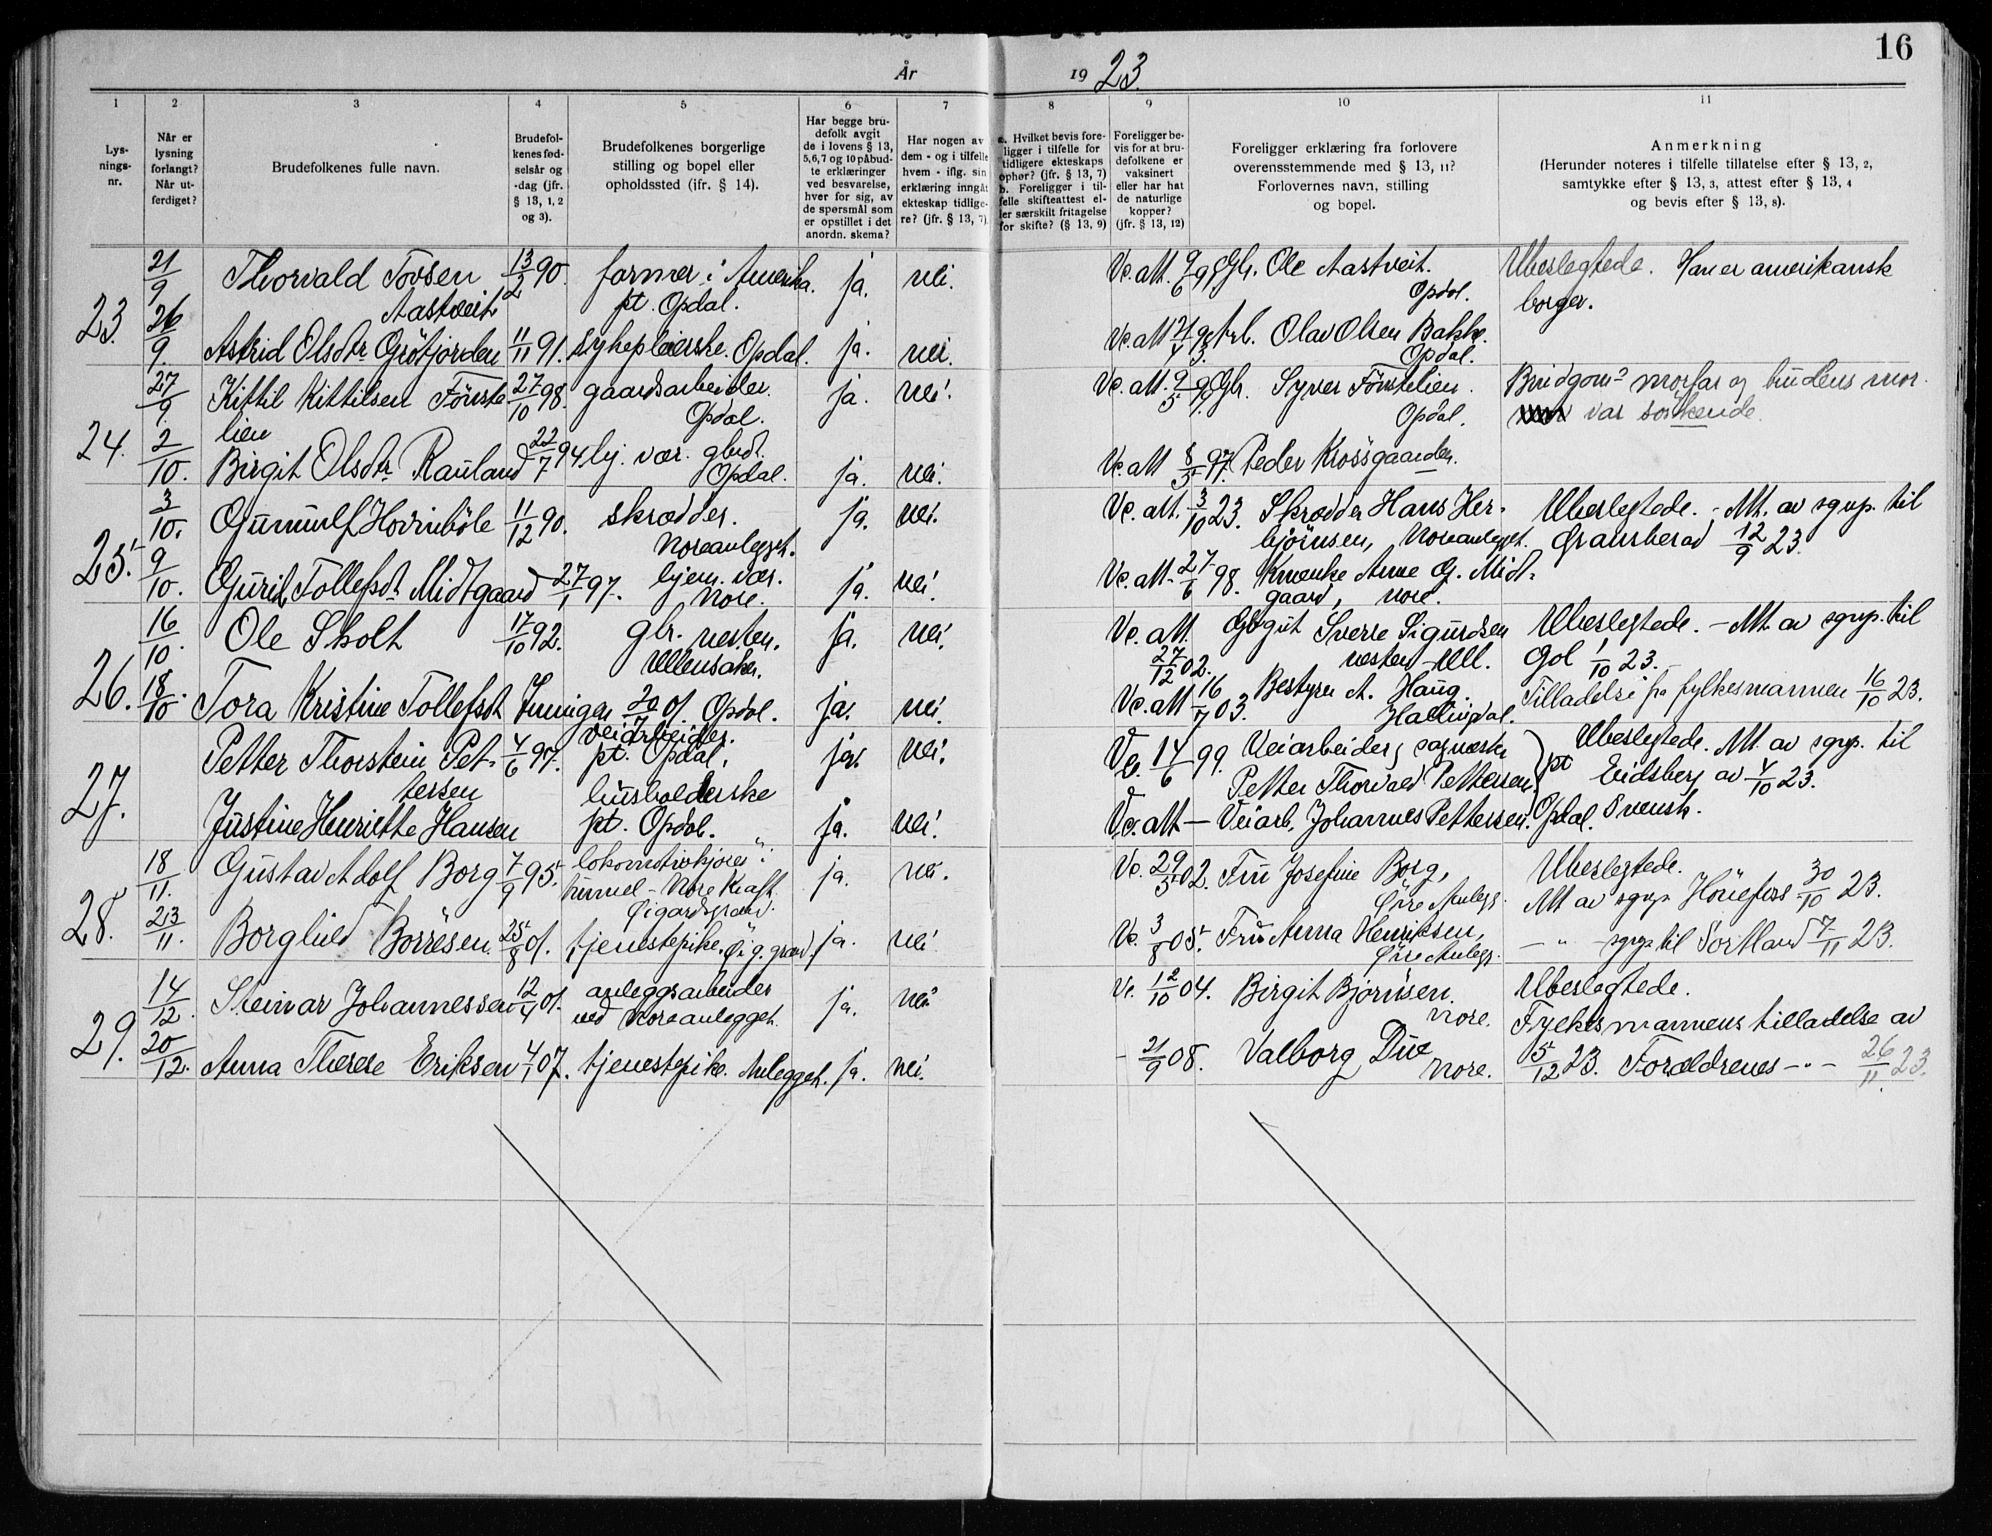 16
År 1923.
1 2 3 4 5 6 7 8 9 10 11
Lys-
nings-
nr.
Når er
lysning
forlangt?
Når ut-
ferdiget?
Brudefolkenes fulle navn.
Brudefol-
kenes fød-
selsår og
-dag (jfr.
§ 13, 1, 2
og 3).
Brudefolkenes borgerlige
stilling og bopel eller
opholdssted (ifr. § 14).
Har begge bru-
defolk avgit
de i lovens § 13,
5,6,7 og 10 påbud-
te erklæringer
ved besvarelse,
hver for sig, av
de spørsmål som
er opstillet i det
anordn. skema?
Har nogen av
dem - og i tilfelle
hvem - iflg. sin
erklæring inngått
ekteskap tidlige-
re? (jfr. § 13, 7).
a. Hvilket bevis fore-
ligger i tilfelle for
tidligere ekteskaps
ophør? (jfr. § 13, 7)
b. Foreligger i til-
felle skifteattest el-
ler særskilt fritagelse
for skifte? (§ 13, 9)
Foreligger be-
vis for at bru-
defolkene er
vaksinert
eller har hat
de naturlige
kopper?
(jfr. § 13, 12)
Foreligger erklæring fra forlovere
overensstemmende med § 13, 11?
Forlovernes navn, stilling
og bopel.
Anmerkning
(Herunder noteres i tilfelle tillatelse efter § 13, 2,
samtykke efter § 13, 3, attest efter § 13, 4
og bevis efter § 13, 8).
23. 21/9 Thorvald Tovsen 13/2 90. farmer i Amerika. ja. nei. Vc. att. Gbr. Ole Aastveit. Ubeslegtede. Han er amerikansk
Aastveit pt. Opdal. Opdal. borger.
26/9. Astrid Olsdtr Grøtjorden 11/11 91. sykepleierske. Opdal. ja. nei. Vc. att Olav Olsen Bakke.
Opdal.
24. 27/9. Kittil Kittilsen Fönste 27/10 98. gaardsarbeider. ja. nei. Vc. att. Gbr. Syver Fönstelien. Brudgoms morfar og brudens mor
lien Opdal. Opdal. var søskende.
2/10. Birgit Olsdtr Rauland 22/7 94 hj. vær. Opdal. ja. nei. Vc. att 8/5 97. Peder Krossgaarden.
25. 3/10. Gunnulf Hovinböle 11/12 90. skrædder. ja. nei. Vc. att. 3/10 23. Skrædder Hans Her- Ubeslegtede. - Att. av sgnp. til
Noreanlegget. björnsen, Noreanlegget. Gransherad 12/9 23.
9/10. Guril Tollefsdt Midtgaard 27/1 97. hjem. vær. ja. nei. Vc. att - 27/6 98. Anne G. Midt-
Nore. gaard, Nore.
26. 16/10. Ole Skolt 17/10 92. gbr. nesten. ja. nei. Vc. att. Sverre Sigurdsen Ubeslegtede. - Att. av sgnp. til
Ullensaker. 27/12 02. nesten - Ull. Gol 1/10 23.
18/10. Tora Kristine Tollefsdt Inninger 20/7 01. Opdal. ja. nei. Vc. att 16/7 03. Bestyrer A. Haug. Tilladelse fra fylkesmannen 16/10 23.
Hallingdal.
27. Petter Thorstein Pet- 4/6 97. veiarbeider. pt. Opdal. ja. nei. Vc. 14/6 99. Veiarbeider, Ubeslegtede. Att. av sgnp. til
tersen Petter Thorvald Pettersen pt Eidsberg av 4/10 23.
Justine Henriette Hansen husholderske pt. Opdal. ja. nei. Vc. att - Veiarb. Johannes Pettersen. Opdal. Svensk.
28. 18/11. Gustav Adolf Borg 7/9 95. lokomotivkjører i ja. nei. Vc. 29/5 02. Fru Josefine Borg, Ubeslegtede.
tunnel - Nore Kraft. Øvre Anlegg. Att av sgnp Hönefoss 30/10 23.
Øigardsgrand.
23/11. Borghild Börresen 25/8 01. tjenestepike. Øig. grand. ja. nei. Vc. 3/8 05. Fru Anna Henriksen, - " - sgnp. til Sortland 7/11 23.
Øvre Anlegg.
29. 14/12. Steinar Johannessen 12/4 01. anleggsarbeider ja. nei Vc. 12/10 04. Birgit Björnsen. Ubeslegtede.
ved Noreanlegget. Nore. Fylkesmannens tilladelse av
20/12. Anna Therese Eriksen 4/1 07. tjenestepike. Anlegget. ja. nei. - 21/9 08. Valborg Due 5/12 23. Foreldrenes - " - 26/11. 23.
Nore.